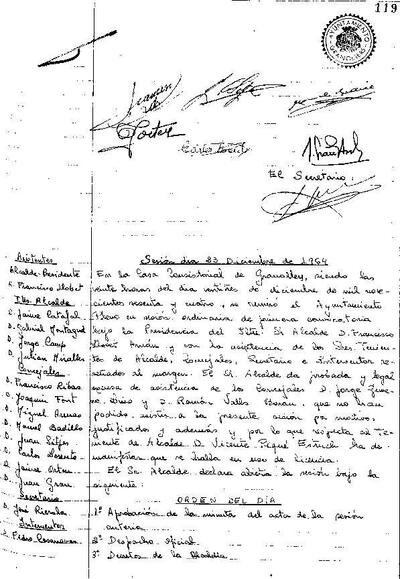 119
AYUNTAMIENTO
GRANOLLERS
El Secretario:
Sesión día 23 Diciembre de 1964
Asistentes
Alcalde-Presidente
D. Francisco Llobet
Ttes. Alcalde
D. Jaime
D. Gabriel Montagud
D. Jorge Camp
D. Julian Miralles
Concejales
D. Francisco Ribas
D. Joaquin Font
D. Miguel
D. Manuel Badillo
D. Juan Sitjes
D. Carlos
D. Jaime
D. Juan Grau
Secretario
D. José
Interventor
D. Pedro Casanovas
En la Casa Consistorial de Granollers, siendo las
veinte horas del día veintitres de diciembre de mil nove-
cientos sesenta y cuatro, se reunió el Ayuntamiento
Pleno en sesión ordinaria de primera convocatoria
bajo la Presidencia del Iltre. Sr. Alcalde D. Francisco
Llobet Arnán y con la asistencia de los Sres. Tenien-
tes de Alcalde, Concejales, Secretario e Interventor re-
señados al margen. El Sr. Alcalde da probada y legal
escusa de asistencia de los Concejales D. Jorge
y D. Ramón Valls que no han
podido asistir a la presente sesión por motivos
justificados y además y por lo que respecta al Te-
niente de Alcalde D. Vicente ha de
manifestar que se halla en uso de licencia.
El Sr. Alcalde, declara abierta la sesión bajo la
siguiente:
ORDEN DEL DÍA
1º Aprobación de la minuta del acta de la sesión
anterior
2º Despacho oficial
3º Decretos de la Alcaldía